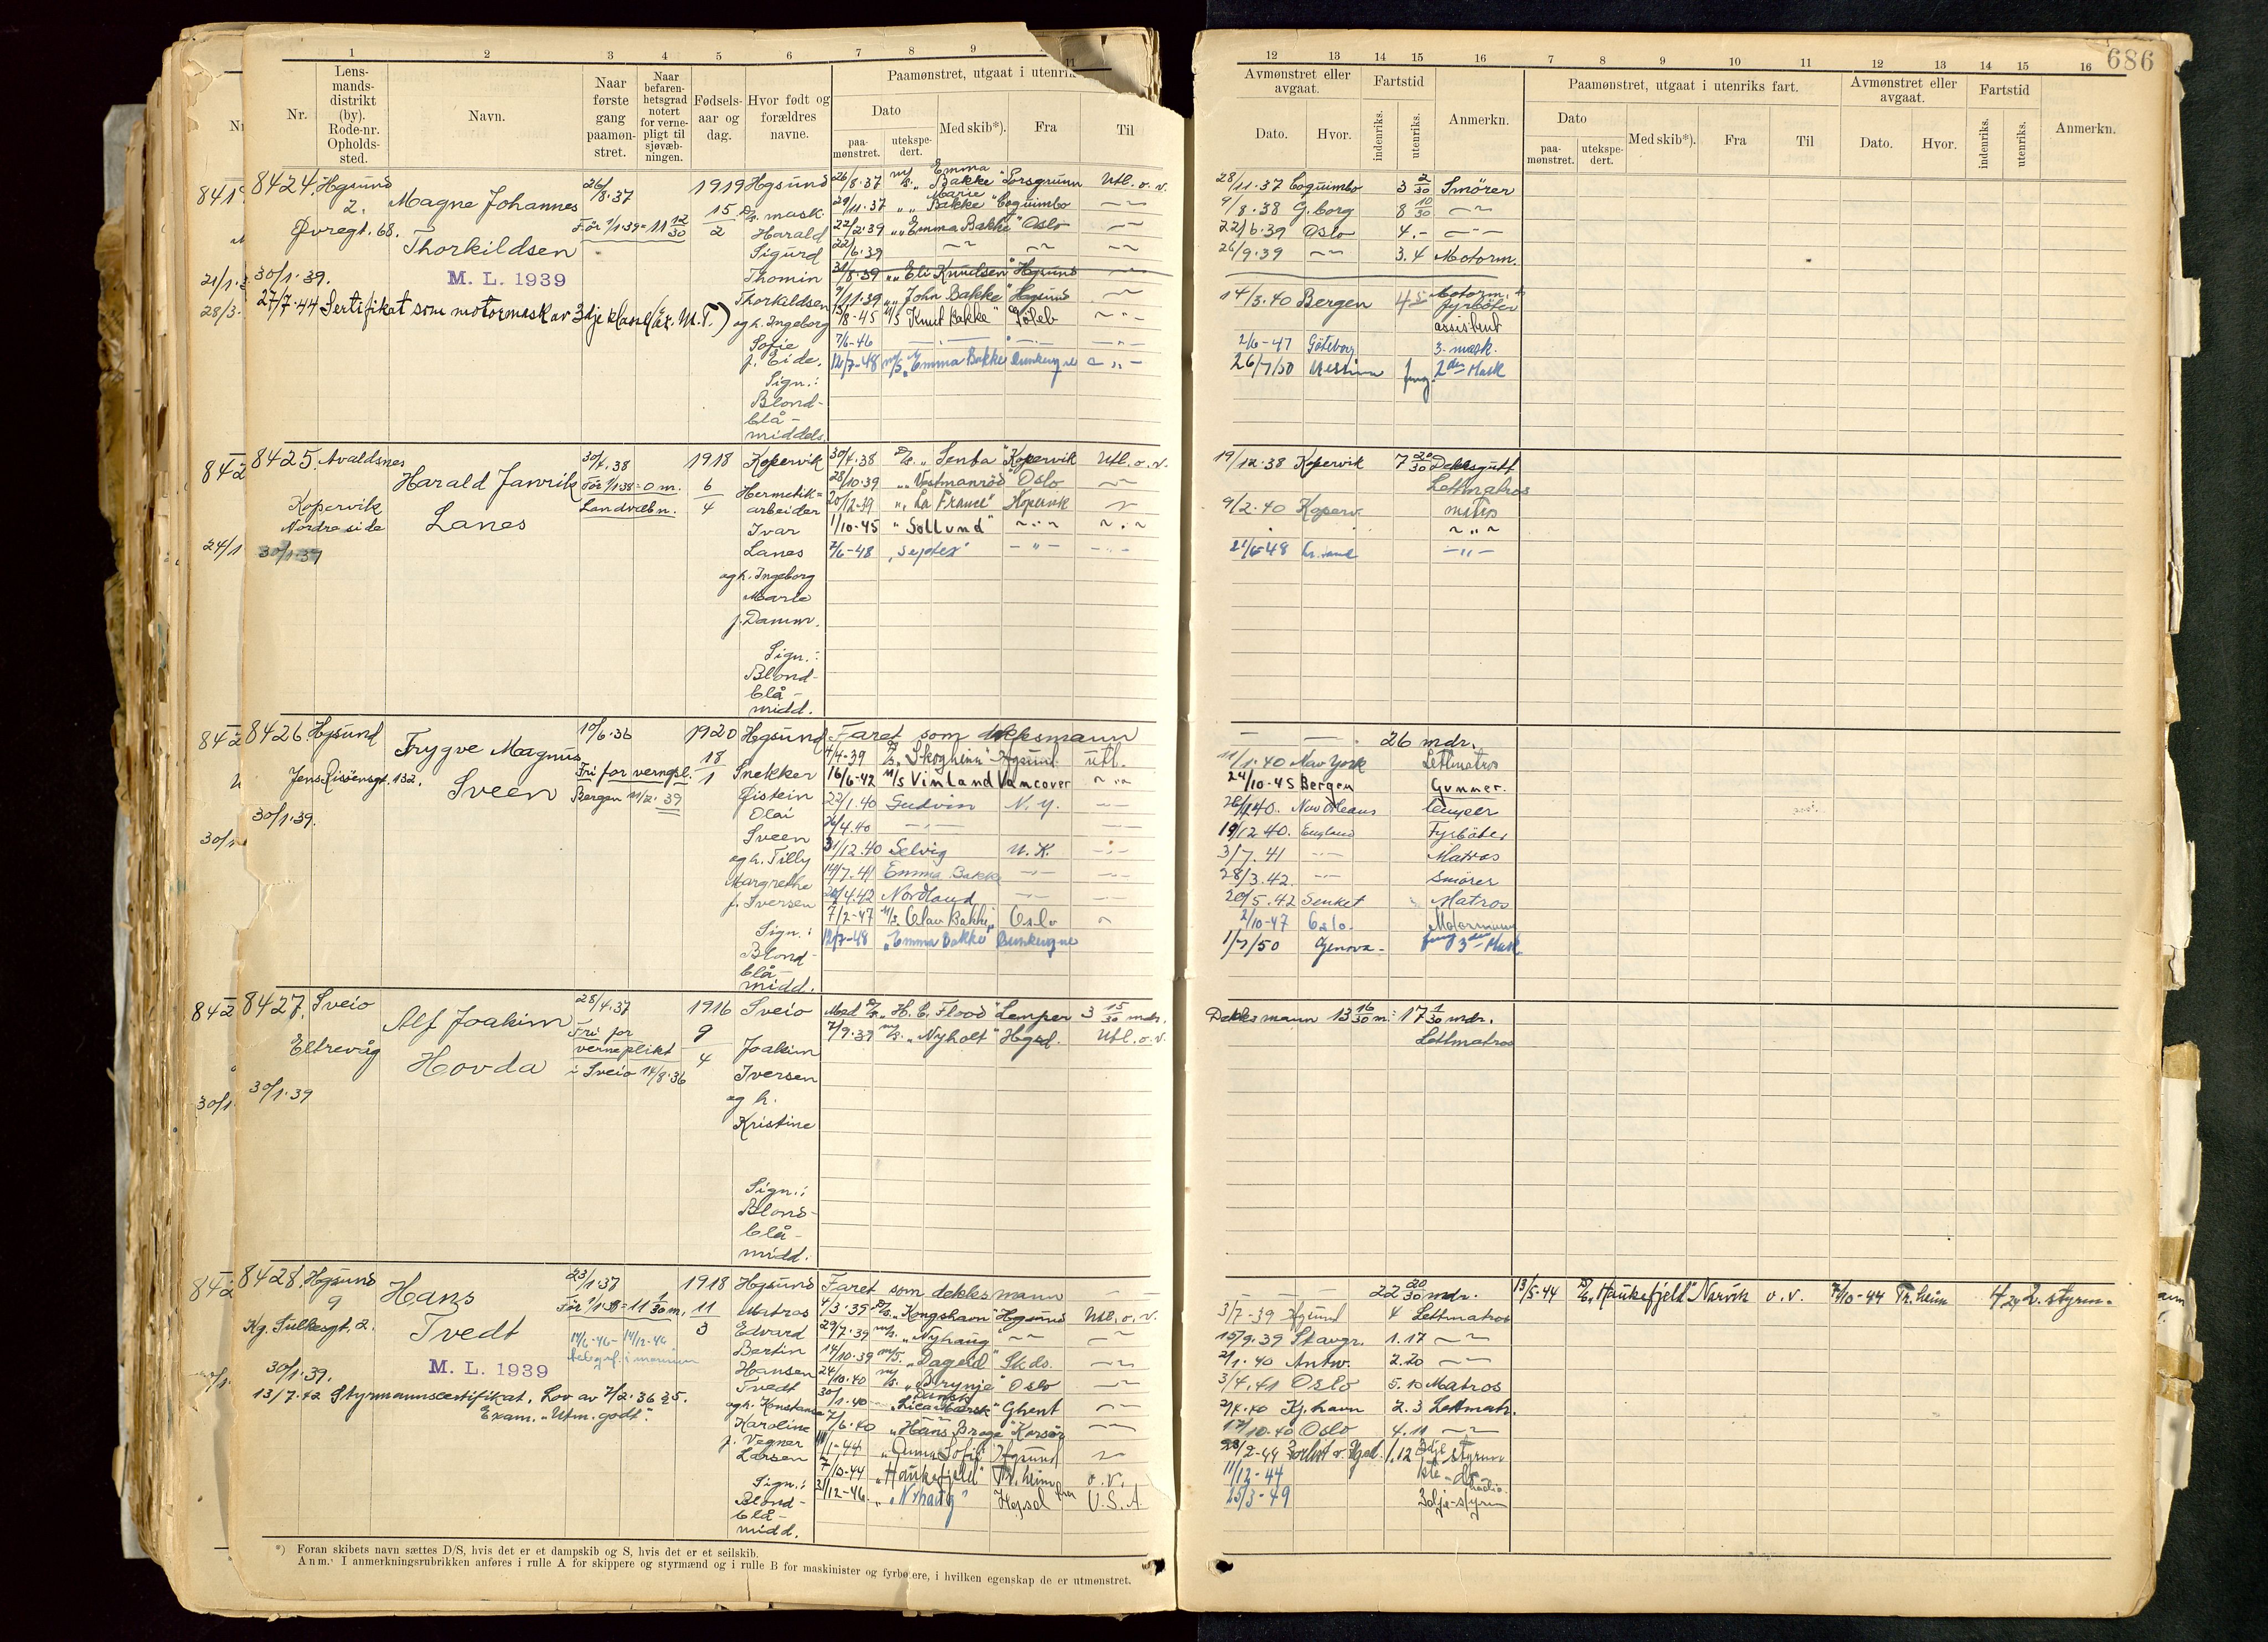 686
1 2 3 4 5 6 7 8 9 11
Nr.
Lens-
mands-
distrikt
(by).
Rode-nr.
Opholds-
sted.
Navn.
Naar
første
gang
paamøn-
stret.
Naar
befaren-
hetsgrad
notert
for verne-
pligt til
sjøvæb-
ningen.
Fødsels-
aar og
dag.
Hvor født og
forældres
navne.
Paamønstret, utgaat i utenrik
Dato
paa-
mønstret.
utekspe-
dert.
Med skib*).
Fra
Til
12 13 14 15 16 7 8 9 10 11 12 13 14 15 16
Avmønstret eller
avgaat.
Dato.
Hvor.
Fartstid
indenriks.
utenriks.
Anmerkn.
Paamønstret, utgaat i utenriks fart.
Dato
paa-
mønstret.
utekspe-
dert.
Med skib*).
Fra
Til
Avmønstret eller
avgaat.
Dato.
Hvor.
Fartstid
indenriks.
utenriks.
Anmerkn.
8424. Hgsund
2.
Øvregt. 68.
Magne Johannes
Thorkildsen
M. L. 1939
30/1.39.
27/7.44 Sertifikat som motormask av 3dje klasse (Ex. M.T.)
26/8.37
Før 1/1.39 = 11 12/30
1919
15/2
Hgsund
mask.
Harald
Sigurd
Thomin
Thorkildsen
og h. Ingeborg
Sofie
f. Eide.
Sign.:
Blond-
blå-
middels.
26/8.37 m/s. "Emma Bakke" Porsgrunn Utl. o. v.
29/11.37 " "Marie Bakke" Coquimbo
22/2.39 " "Emma Bakke" Oslo
22/6.39
31/8.39 " "Eli Knudsen" Hgsund
/11.39 " "John Bakke" Hgsund
/8-45 M/S "Knut Bakke" Göteb
7/6-46
12/7-48 m/s "Emma Bakke" Dunkerque
28/11.37 Coquimbo 3 2/30 Smører
9/8.38 G.borg 8 10/30
22/6.39 Oslo 4.-
26/9.39 3.4 Motorm.
14/3.40 Bergen 4 5 Motorm.
fyrbøter
assistent
2/6-47 Göteborg 3. mask.
26/7/50 Messina fung. 2den Mask
8425. Avaldsnes
Kopervik
Nordre side
30/1.39
Harald Janrik
Lanes
30/4.38
Før 1/1.38 = 0 m.
Landvæbn.
1918
6/4
Kopervik
Hermetik=
arbeider
Ivar
Lanes
og h. Ingeborg
Marie
f. Damm.
Sign.:
Blond-
blå-
midd.
30/4.38 D/s. "Senta" Kopervik Utl. o. v.
28/10.39 " "Vestmanrød" Oslo
20/12-39 " "La France" Kopervik
1/10-45 " "Sollund"
7/6-48 "Septer"
19/12.38 Kopervik 7 20/30 Dekksgutt
Lettmatros
9/2.40 Koperv. matros
21/6-48
8426. Hgsund
Jens Risøensgt. 132.
30/1.39.
Trygve Magnus
Sveen
10/6.36
Fri for vernepl.
Bergen 11/2. 39
1920
18/1
Hgsund
Snekker
Øistein
Olai
Sveen
og h. Tilly
Margrethe
f. Iversen
Sign.:
Blond-
blå-
midd.
Faret som dekksmann 26 mdr.
4/4-39 D/s. "Skogheim" Hgsund. utl.
16/6-42 M/s Vinland Vancover
22/1.40 Gudvin N.Y.
26/4.40
31/12.40 Selvig U.K.
14/7.41 Emma Bakke
20/4.42 Nordland
7/2-47 M/s "Olav Bakke" Oslo
12/7-48 "Emma Bakke" Dunkerque
11/1.40 New York Lettmatros
24/10-45 Bergen Gunner.
26/4.40. New Orleans Lemper
19/12 40. England Fyrbøter
3/7.41 Matros
28/3.42. Smører
20/5.42 Senket Matros
2/10-47 Oslo. Motormann
1/7/50 Genova. fung 3die Mask.
8427. Sveio
Eltrevåg
30/1.39
Alf Joakim
Hovda
28/4.37
Fri for
verneplikt
i Sveio 14/8.36
1916
9/4
Sveio
Joakim
Iversen
og h.
Kristine
Sign.:
Blond-
blå-
midd.
Med D/s. "H. C. Flood" Lemper 3 15/30 mdr. Dekksmann 13 16/30 m: 17 1/30 mdr.
7/9.39 m/s. "Nyholt" Hgsd. Utl. o. v. Lettmatros
8428. Hgsund
9
Kg. Sulkesgt. 2.
30/1.39.
Hans
Tvedt
M. L. 1939
13/7.42 Styrmannscertifikat. Lov av 7/2.36 § 5.
Exam. "Utm. godt".
23/1.37
Før 1/1.38 = 11 1/30 m.
14/6-46 - 14/12-46
i marinen
1918
11/3
Hgsund
Matros
Edvard
Bertin
Hansen
Tvedt
og h. Konstanse
Karoline
f. Vegner
Larsen
Sign.:
Blond-
blå-
midd.
Faret som dekksmann 22 20/30 mdr.
4/3.39 D/s. "Kongshavn" Hgsund Utl. o. v.
29/7.39 m/s. "Nyhaug"
14/10.39 m/s. "Dageid" Sk.ds.
24/10.40 m/s. "Brynje" Oslo
30/1.40 Dansk "Lica Mærsk" Ghent
7/6.40 "Hans Broge" Korsør
/1-44 "Anna Sofie" Hgsund
7/10-44 "Haukefjeld" Tr. heim o. v.
31/12-46. " "Nyhaug" Hgsd fra U.S.A.
3/7-39 Hgsund 4 Lettmatros
15/9.39 Stavgr. 1.17
2/1.40 Antw. 2.20
3/4.41 Oslo 5.10 Matros
2/4.40 Kj.havn 2.3 Lettmatr.
17/10.40 Oslo 4.11
28/2-44 Forlist v. Hgsd. 1.12 3dje styrm
11/12-44
25/3-49 3dje-styrm
13/5-44 D/s. "Haukefjeld" Narvik o. v. 7/10-44 Tr. heim 4.24 2. styrm.
*) Foran skibets navn sættes D/S, hvis det er et dampskib og S, hvis det er et seilskib.
Anm. I anmerkningsrubrikken anføres i rulle A for skippere og styrmænd og i rulle B for maskinister og fyrbøtere, i hvilken egenskap de er utmønstret.